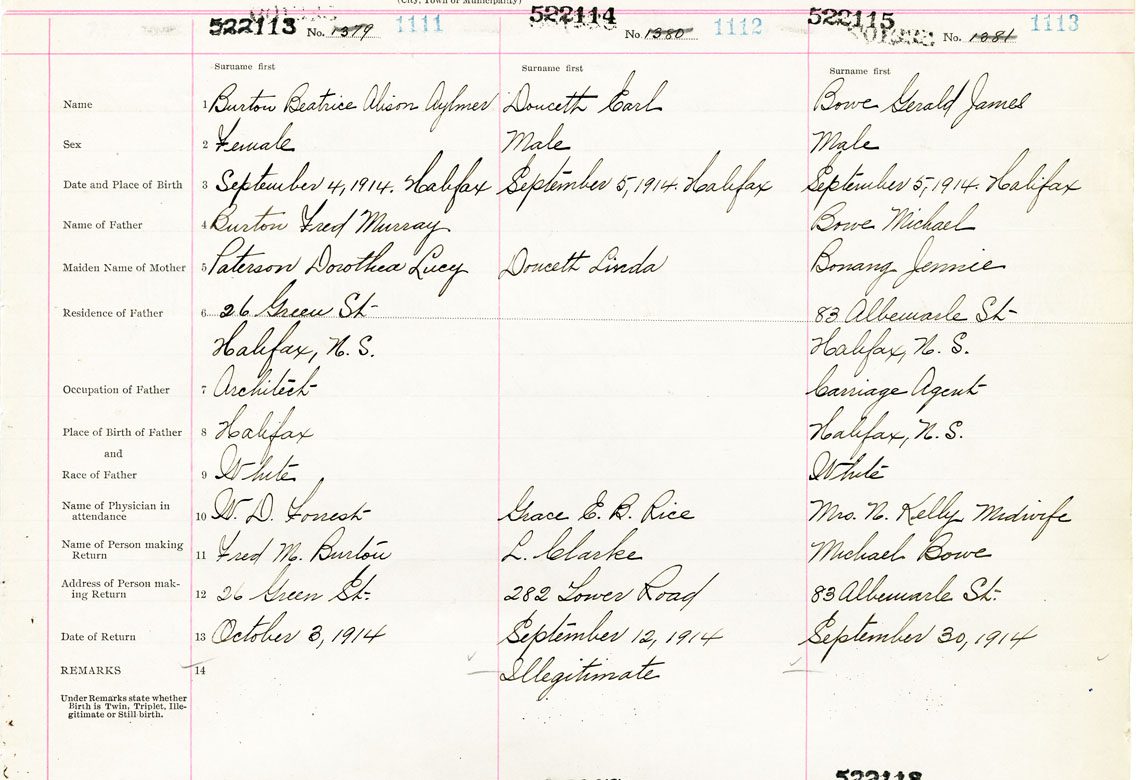 (City, Town or Municipality)
522113 No. 1379 1111 522114 No. 1380 1112 522115 No. 1381 1113
Surname first Surname first Surname first
Name 1 Burton Beatrice Alison Aylmer Douceth Earl Bowe Gerald James
Sex 2 Female Male Male
Date and Place of Birth 3 September 4, 1914. Halifax September 5, 1914. Halifax September 5, 1914. Halifax
Name of Father 4 Burton Fred Murray Bowe Michael
Maiden Name of Mother 5 Paterson Dorothea Lucy Douceth Linda Bonang Jennie
Residence of Father 6 26 Green St 83 Albemarle St
Halifax, N.S. Halifax, N.S.
Occupation of Father 7 Architect Carriage Agent
Place of Birth of Father 8 Halifax Halifax, N.S.
and
Race of Father 9 White White
Name of Physician in
attendance 10 W. D. Forrest Grace E. B. Rice Mrs. N. Kelly Midwife
Name of Person making
Return 11 Fred M. Burton L. Clarke Michael Bowe
Address of Person mak-
ing Return 12 26 Green St. 282 Lower Road 83 Albemarle St.
Date of Return 13 October 3, 1914 September 12, 1914 September 30, 1914
REMARKS 14 Illegitimate
Under Remarks state whether
Birth is Twin, Triplet, Ille-
gitimate or Still birth.
522118